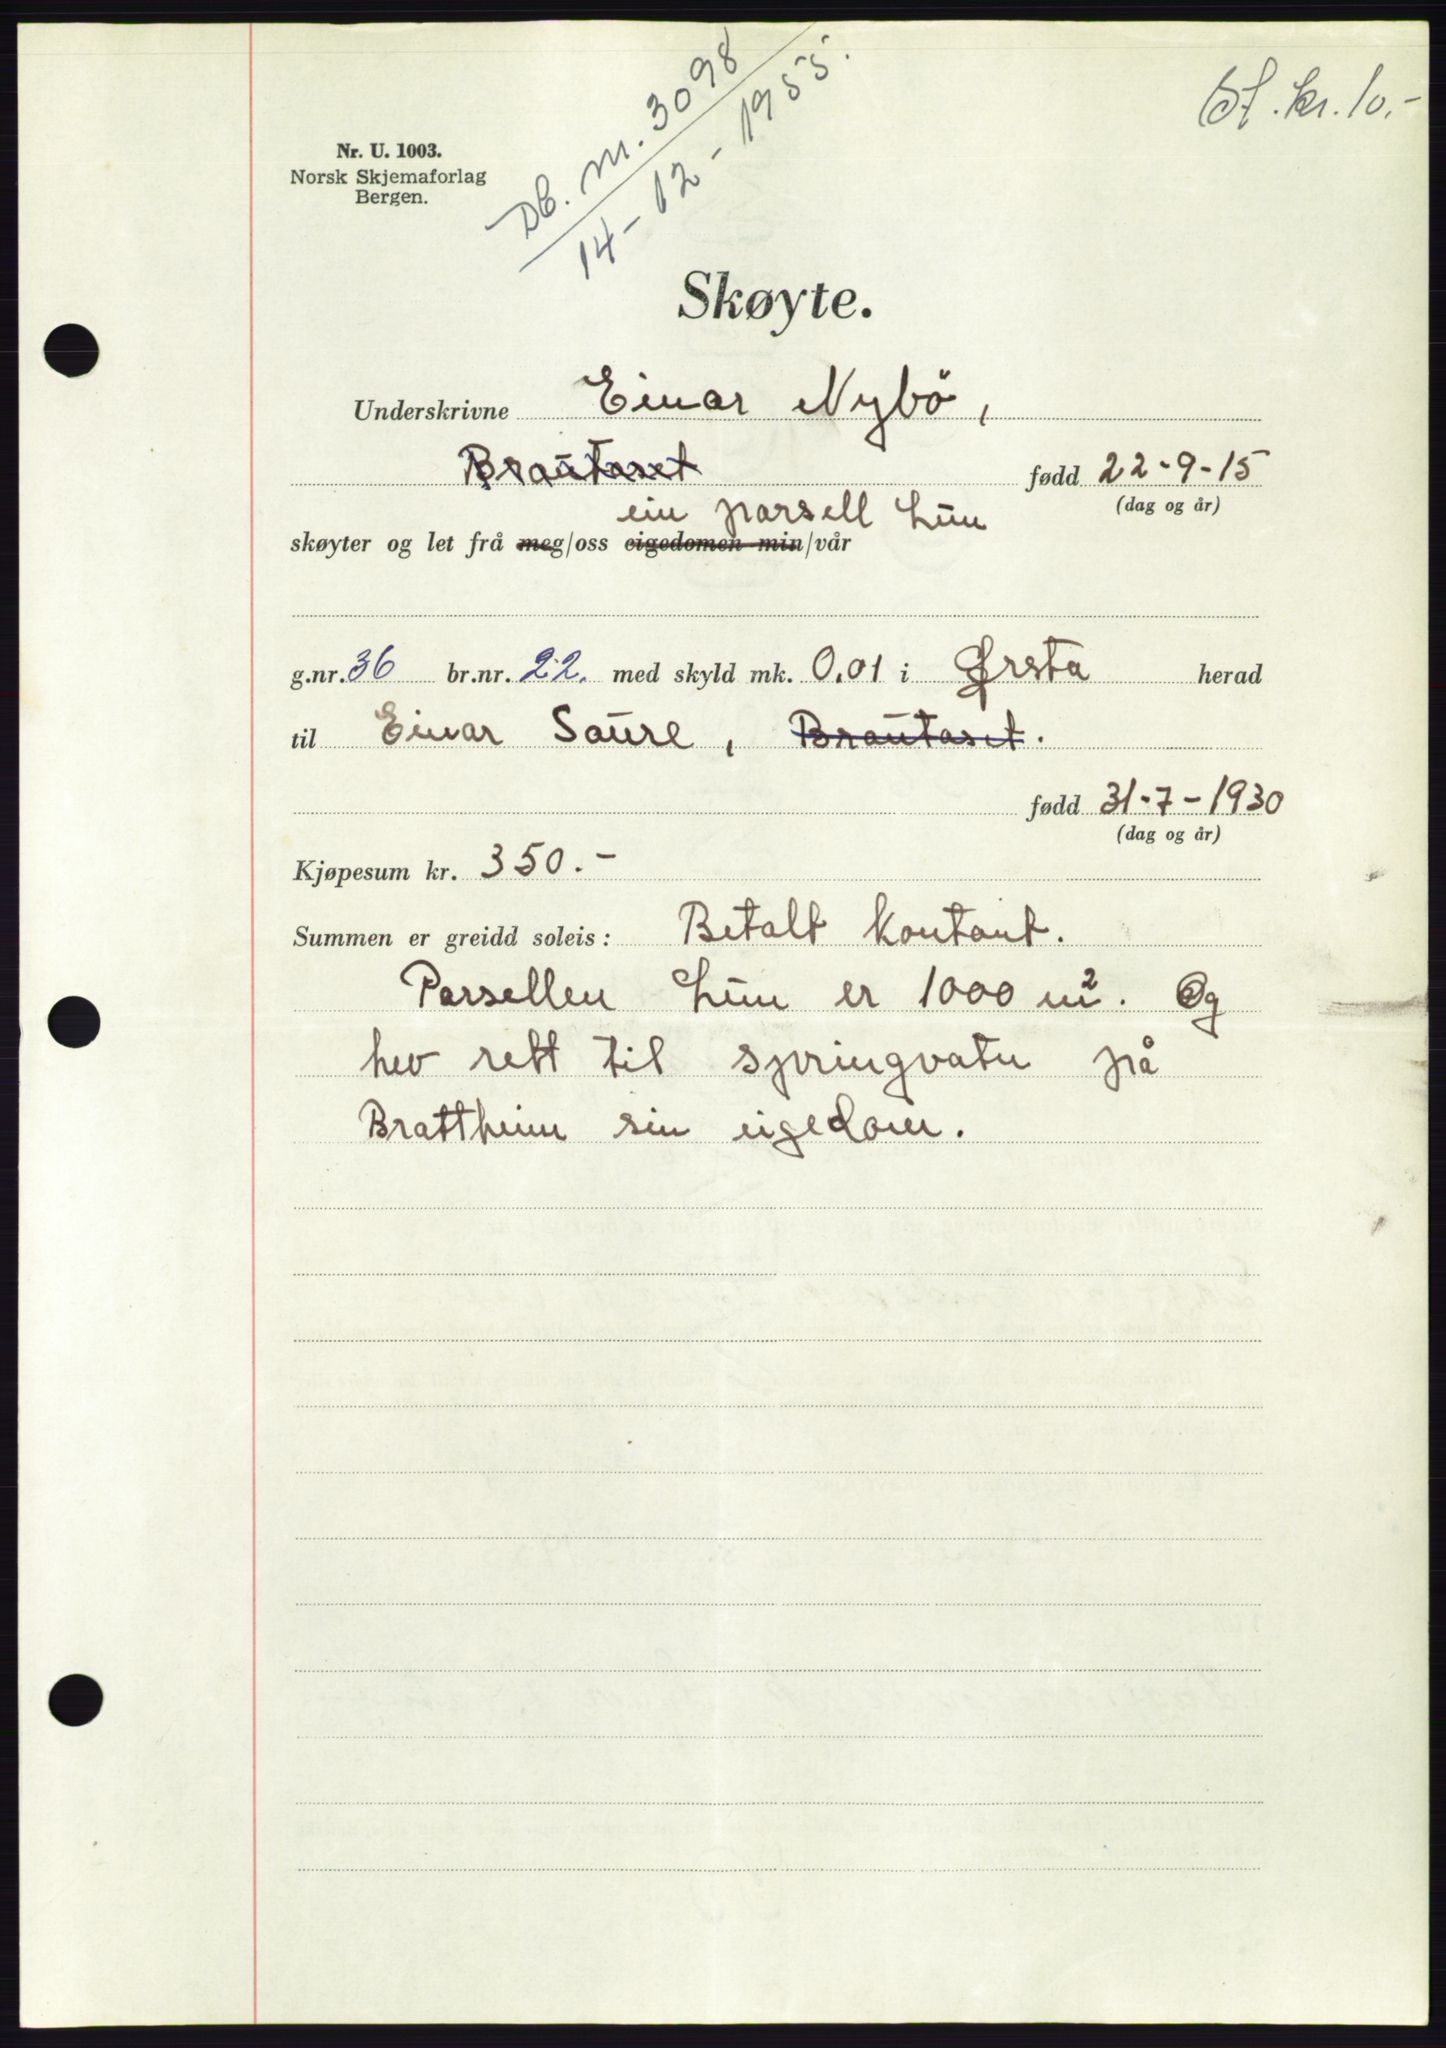 Db. nr. 3098
14-12-1955.
St. kr. 10.-
Nr. U. 1003.
Norsk Skjemaforlag
Bergen.
Skøyte.
Underskrivne Einar Nybö,
Brautaset født 22-9-15
(dag og år)
ein parsell Lun
skøyter og let frå meg/oss eigedomen min/vår
g.nr. 36 br.nr. 22. med skyld mk. 0.01 i Ørsta herad
til Einar Saure, Brautaset.
fødd 31-7-1930
(dag og år)
Kjøpesum kr. 350.-
Summen er greidd soleis: Betalt kontant.
Parsellen Lun er 1000 m². Og
hev rett til springvatn på
Brattheim sin eigedom.